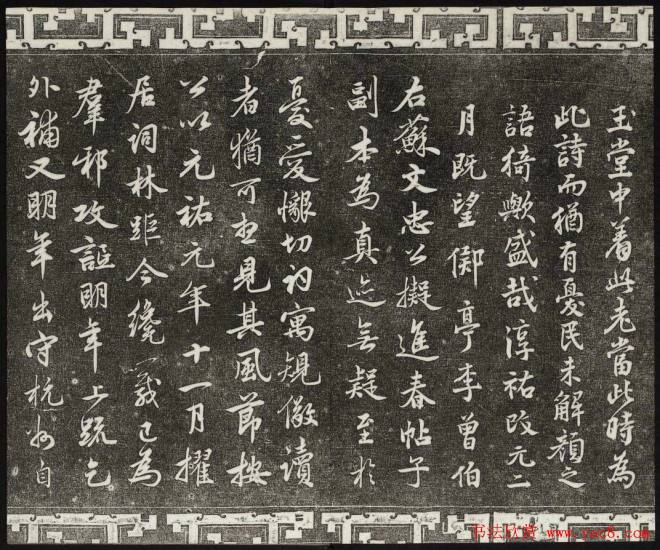 玉堂中着此老當此時為
此詩而猶有憂民未解顏之
語猗歟盛哉淳祐改元二
月既望鄭亭李曾伯
右蘇文忠公擬進春帖子
副本為真迹無疑至於
憂愛懇切初寓規儆讀
者猶可想見其風節按
公以元祐元年十一月擢
居詞林距今纔一歲已為
羣邪攻詆明年上疏乞
外補又明年出守杭州自
书法欣赏 www.yac8.com